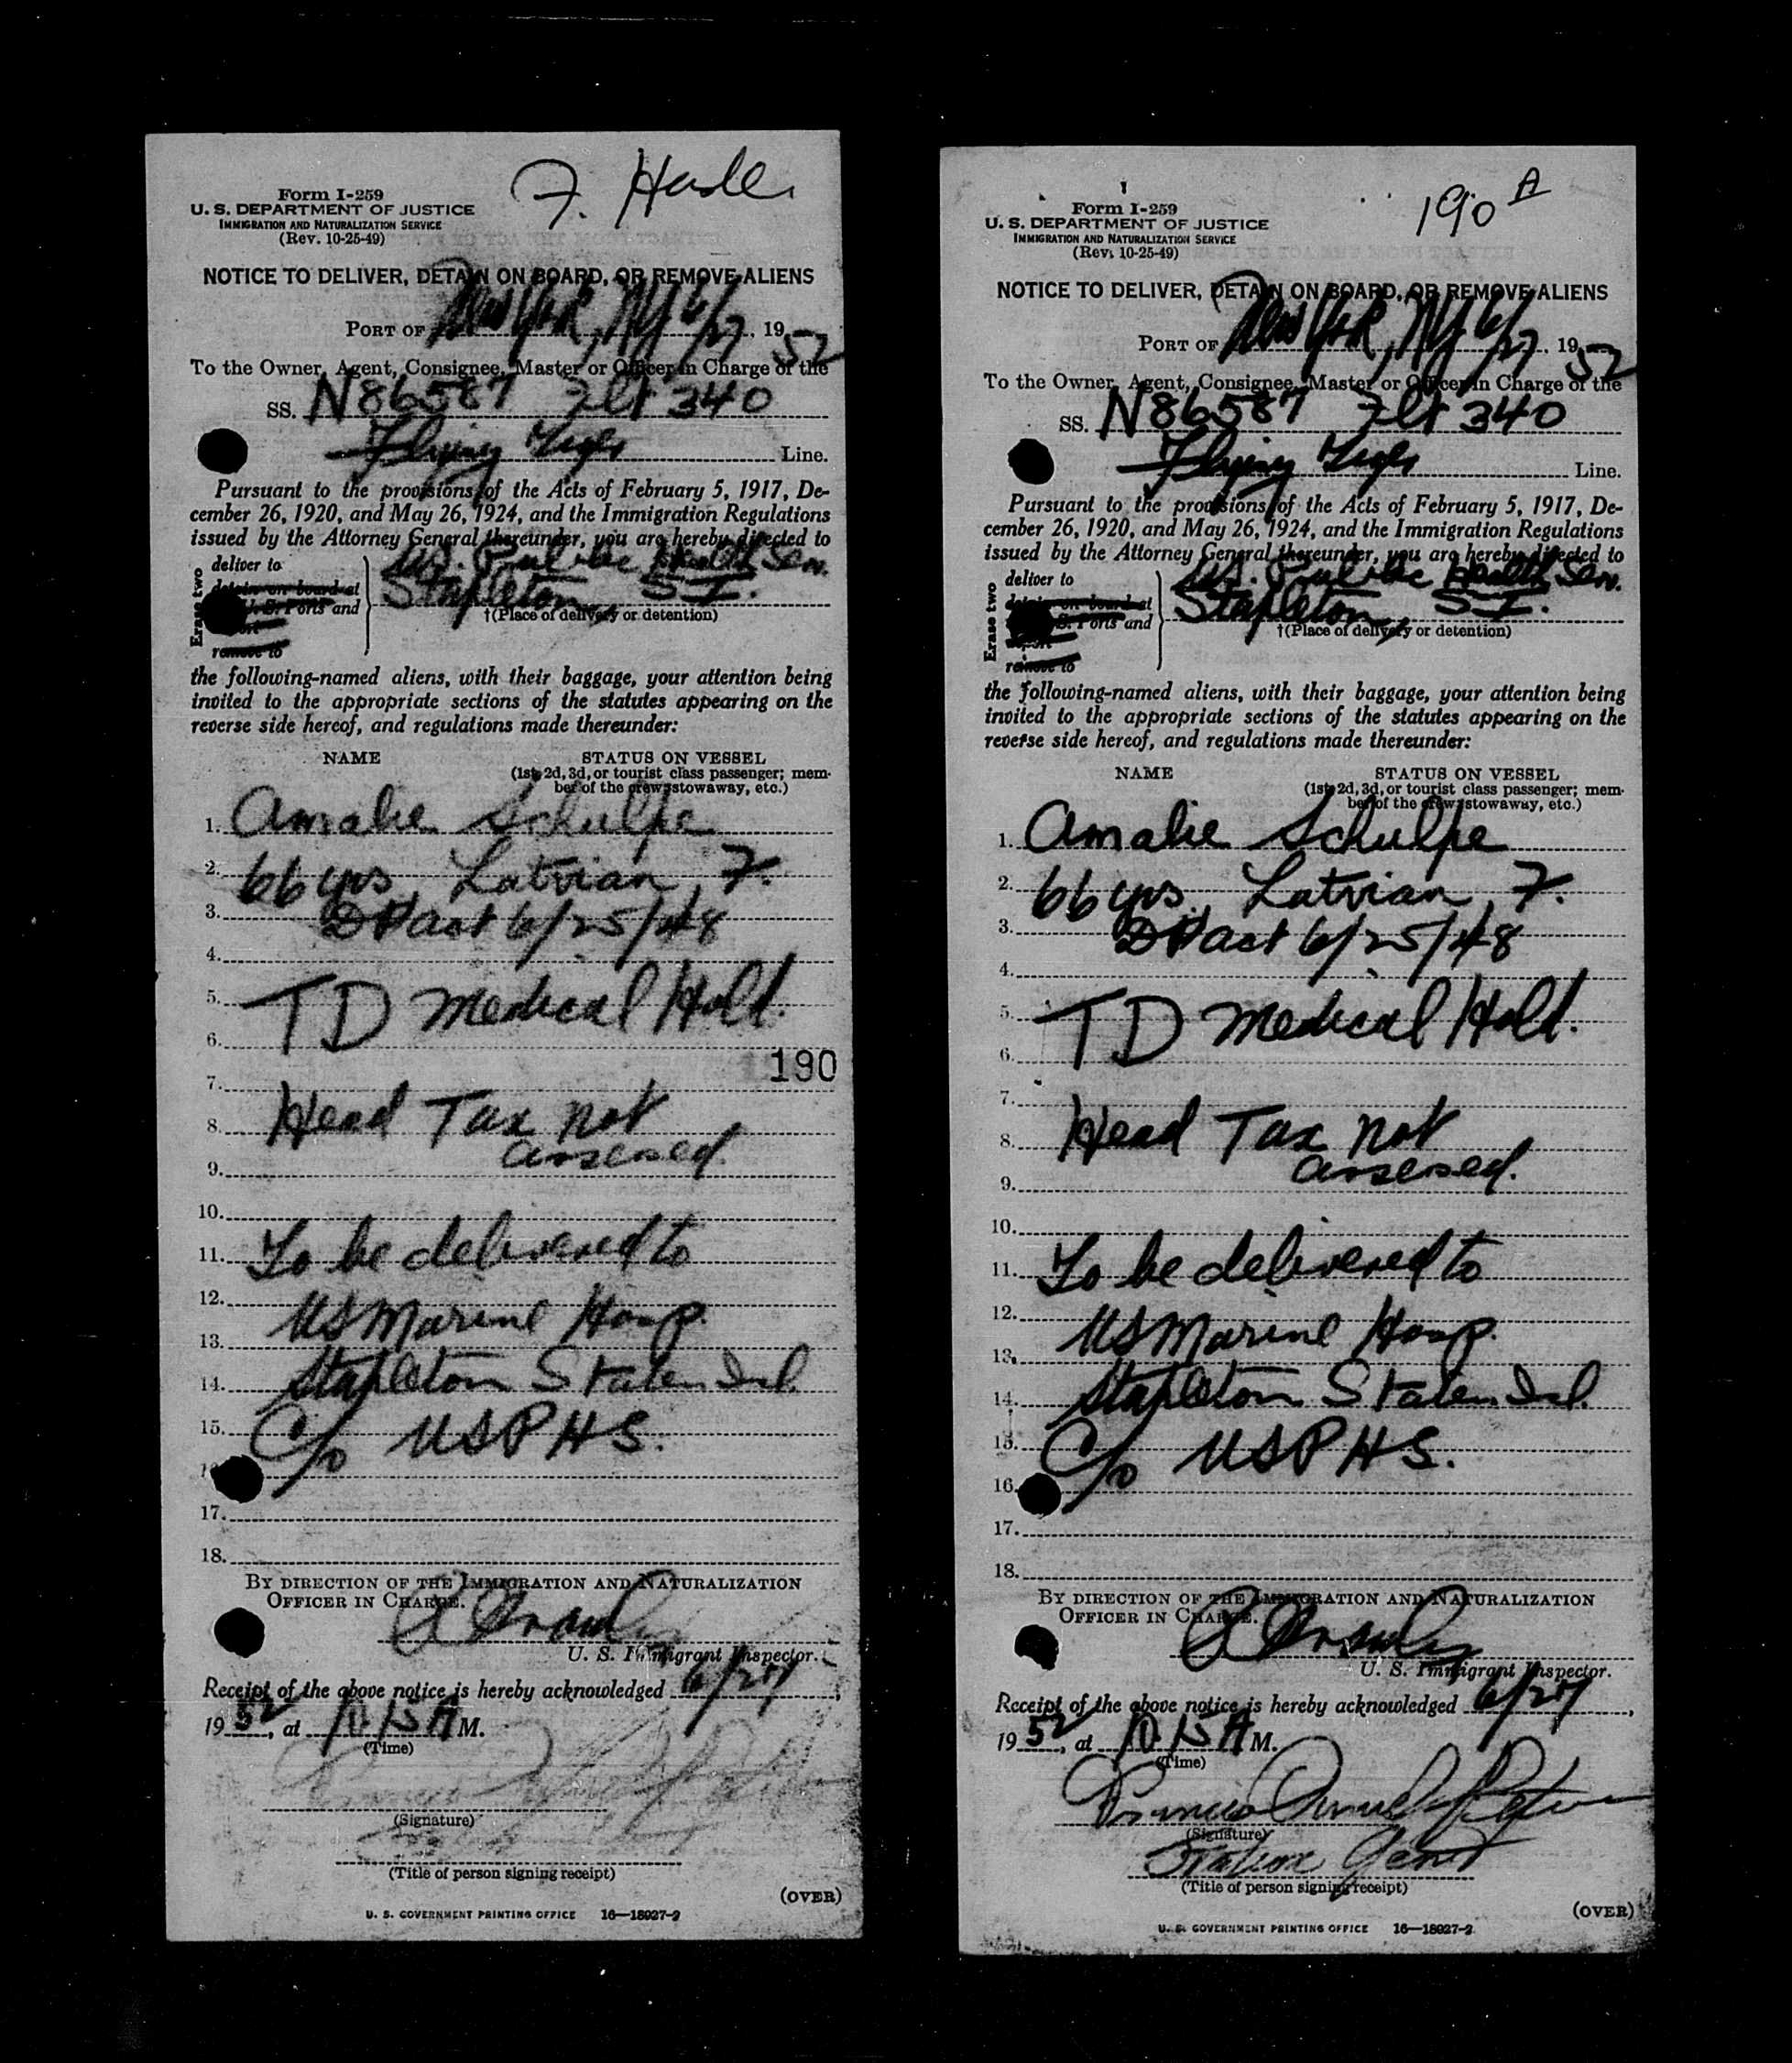 F.
Form I-259
U. S. DEPARTMENT OF JUSTICE
IMMIGRATION AND NATURALIZATION SERVICE
(Rev. 10-25-49)
NOTICE TO DELIVER, DETAIN ON BOARD, OR REMOVE ALIENS
PORT OF New York, NY 6/27, 1952
To the Owner, Agent, Consignee, Master or Officer in Charge of the
SS. N86587 Flt 340
Flying Tiger Line.
Pursuant to the provisions of the Acts of February 5, 1917, De-
cember 26, 1920, and May 26, 1924, and the Immigration Regulations
issued by the Attorney General thereunder, you are hereby directed to
Erase two
deliver to
detain on board at
U. S. Ports and
remove to
U.S. Public Health Serv.
Stapleton, S I.
†(Place of delivery or detention)
the following-named aliens, with their baggage, your attention being
invited to the appropriate sections of the statutes appearing on the
reverse side hereof, and regulations made thereunder:
NAME STATUS ON VESSEL
(1st, 2d, 3d, or tourist class passenger; mem-
ber of the crew, stowaway, etc.)
1. Amalie Schulpe
2. 66 yrs, Latvian, F.
3. DP Act 6/25/48
4.
5. TD Medical Hold.
6.
190
7.
8. Head Tax not
assessed.
9.
10.
11. To be delivered to
12. US Marine Hosp.
13.
14. Stapleton Staten Isl.
15. C/o USPHS.
17.
18.
BY DIRECTION OF THE IMMIGRATION AND NATURALIZATION
OFFICER IN CHARGE.
U. S. Immigrant Inspector.
Receipt of the above notice is hereby acknowledged 6/27,
1952, at 10:15 AM.
(Time)
(Signature)
(Title of person signing receipt)
(OVER)
U. S. GOVERNMENT PRINTING OFFICE 16—18927-2
190 A
Form I-259
U. S. DEPARTMENT OF JUSTICE
IMMIGRATION AND NATURALIZATION SERVICE
(Rev. 10-25-49)
NOTICE TO DELIVER, DETAIN ON BOARD, OR REMOVE ALIENS
PORT OF New York, NY 6/27, 1952
To the Owner, Agent, Consignee, Master or Officer in Charge of the
SS. N86587 Flt 340
Flying Tiger Line.
Pursuant to the provisions of the Acts of February 5, 1917, De-
cember 26, 1920, and May 26, 1924, and the Immigration Regulations
issued by the Attorney General thereunder, you are hereby directed to
Erase two
deliver to
detain on board at
U. S. Ports and
remove to
U.S. Public Health Serv.
Stapleton, S I.
†(Place of delivery or detention)
the following-named aliens, with their baggage, your attention being
invited to the appropriate sections of the statutes appearing on the
reverse side hereof, and regulations made thereunder:
NAME STATUS ON VESSEL
(1st, 2d, 3d, or tourist class passenger; mem-
ber of the crew, stowaway, etc.)
1. Amalie Schulpe
2. 66 yrs, Latvian, F.
3. DP Act 6/25/48
4.
5. TD Medical Hold.
6.
7.
8. Head Tax not
assessed.
9.
10.
11. To be delivered to
12. US Marine Hosp.
13.
14. Stapleton Staten Isl.
15. C/o USPHS.
16.
17.
18.
BY DIRECTION OF THE IMMIGRATION AND NATURALIZATION
OFFICER IN CHARGE.
U. S. Immigrant Inspector.
Receipt of the above notice is hereby acknowledged 6/27,
1952, at 10:15 AM.
(Time)
(Signature)
Station Agent
(Title of person signing receipt)
(OVER)
U. S. GOVERNMENT PRINTING OFFICE 16—18927-2